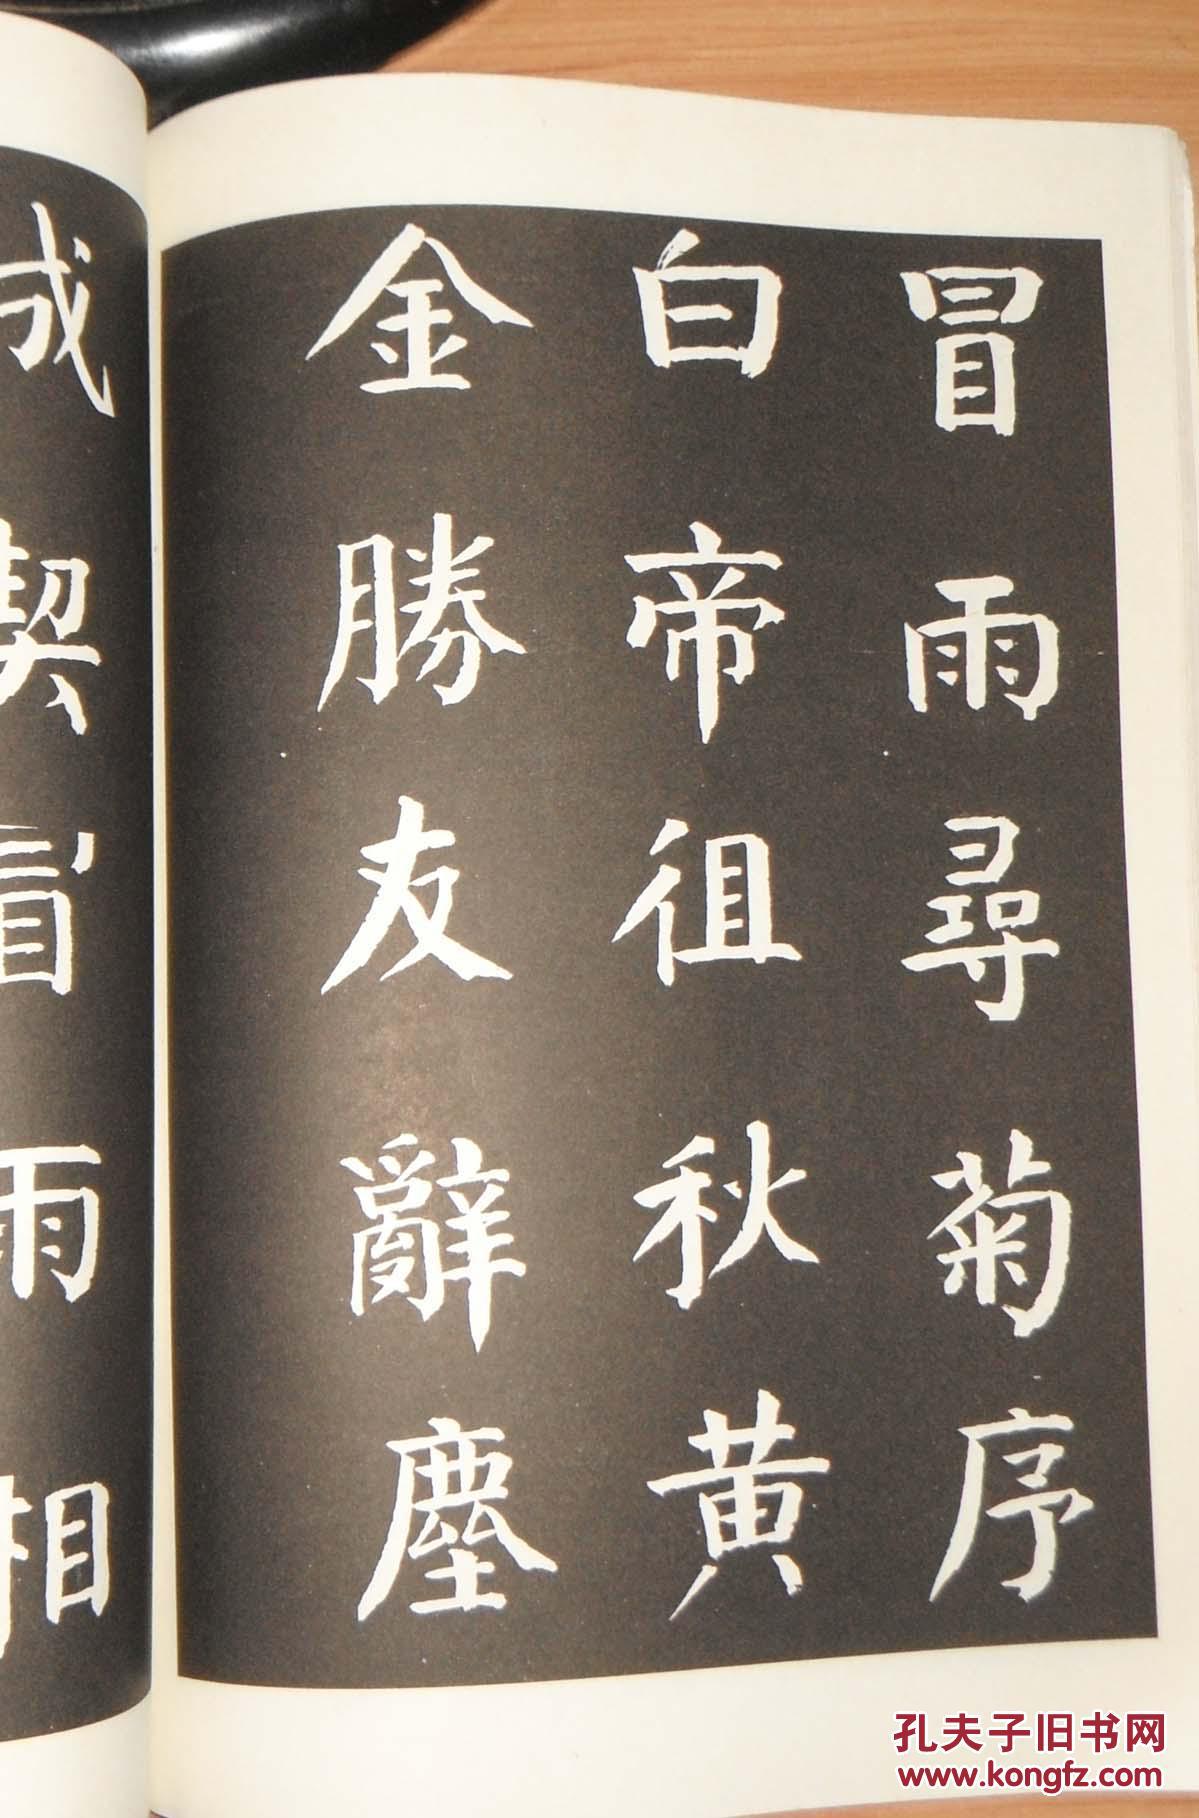 冒雨尋菊序
白帝徂秋黄
金勝友辭塵
成契冒雨相
孔夫子旧书网
www.kongfz.com